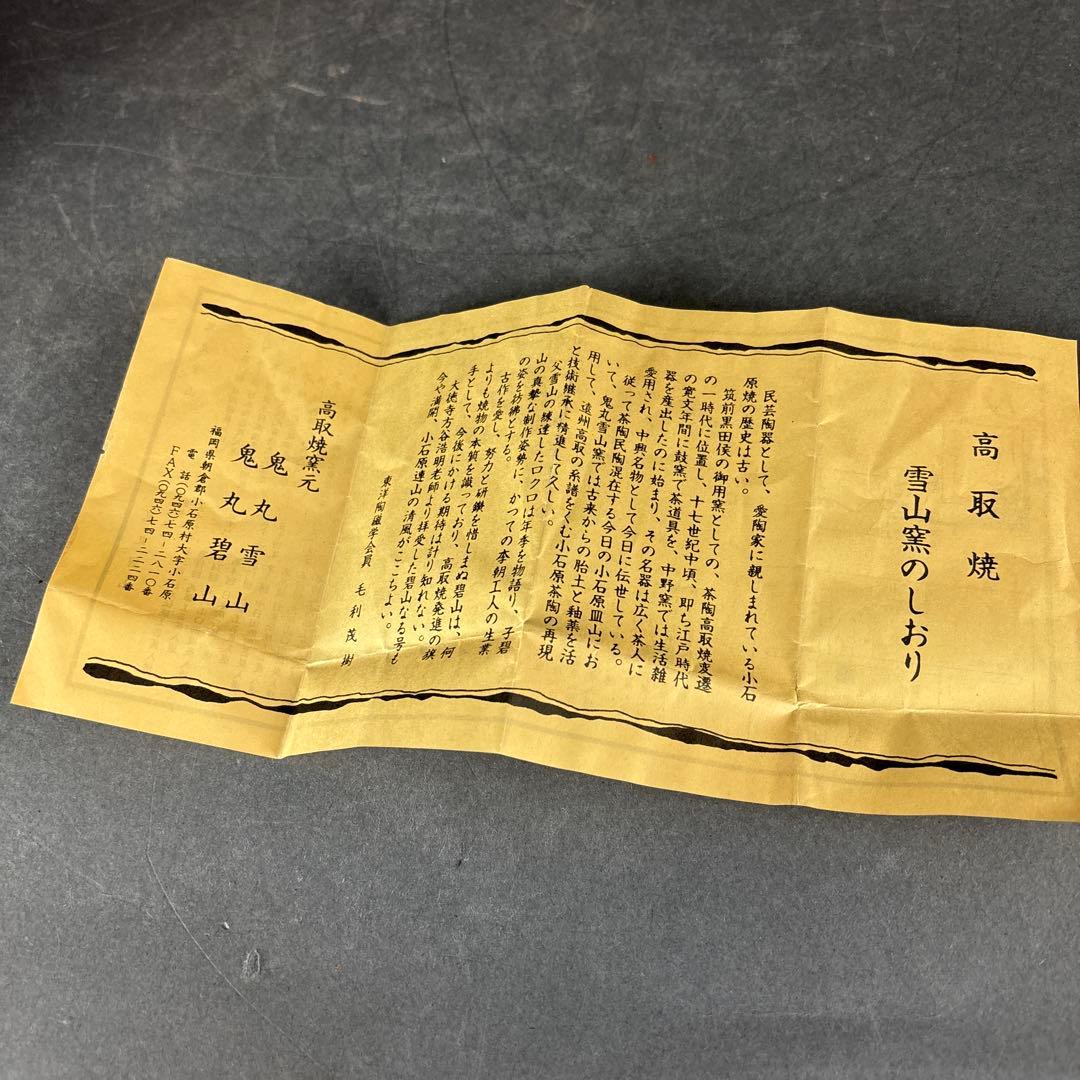 高取焼
雪山窯のしおり
民芸陶器として、愛陶家に親しまれている小石
原焼の歴史は古い。
筑前黒田侯の御用窯としての、茶陶高取焼変遷
の一時代に位置し、十七世紀中頃、即ち江戸時代
の寛文年間に鼓窯で茶道具を、中野窯では生活雑
器を産出したのに始まり、その名器は広く茶人に
愛用され、中興名物として今日に伝世している。
従って茶陶民陶混在する今日の小石原皿山にお
いて、鬼丸雪山窯では古来からの胎土と釉薬を活
用して、遠州高取の系譜をくむ小石原茶陶の再現
と技術継承に精進して久しい。
父雪山の練達したロクロは年季を物語り、子碧
山の真摯な制作姿勢に、かつての李朝工人の生業
の姿を彷彿とする。
古作を愛し、努力と研鑽を惜しまぬ碧山は、何
よりも焼物の本質を識っており、高取焼発進の旗
手として、今後にかける期待は計り知れない。
大徳寺方谷浩明老師より拝受した碧山なる号も
今や満開、小石原連山の清風がここちよい。
東洋陶磁学会員 毛利茂樹
高取焼窯元
鬼丸雪山
鬼丸碧山
福岡県朝倉郡小石原村大字小石原
電話(〇九四六)七四-二八一〇番
FAX(〇九四六)七四-二二二四番